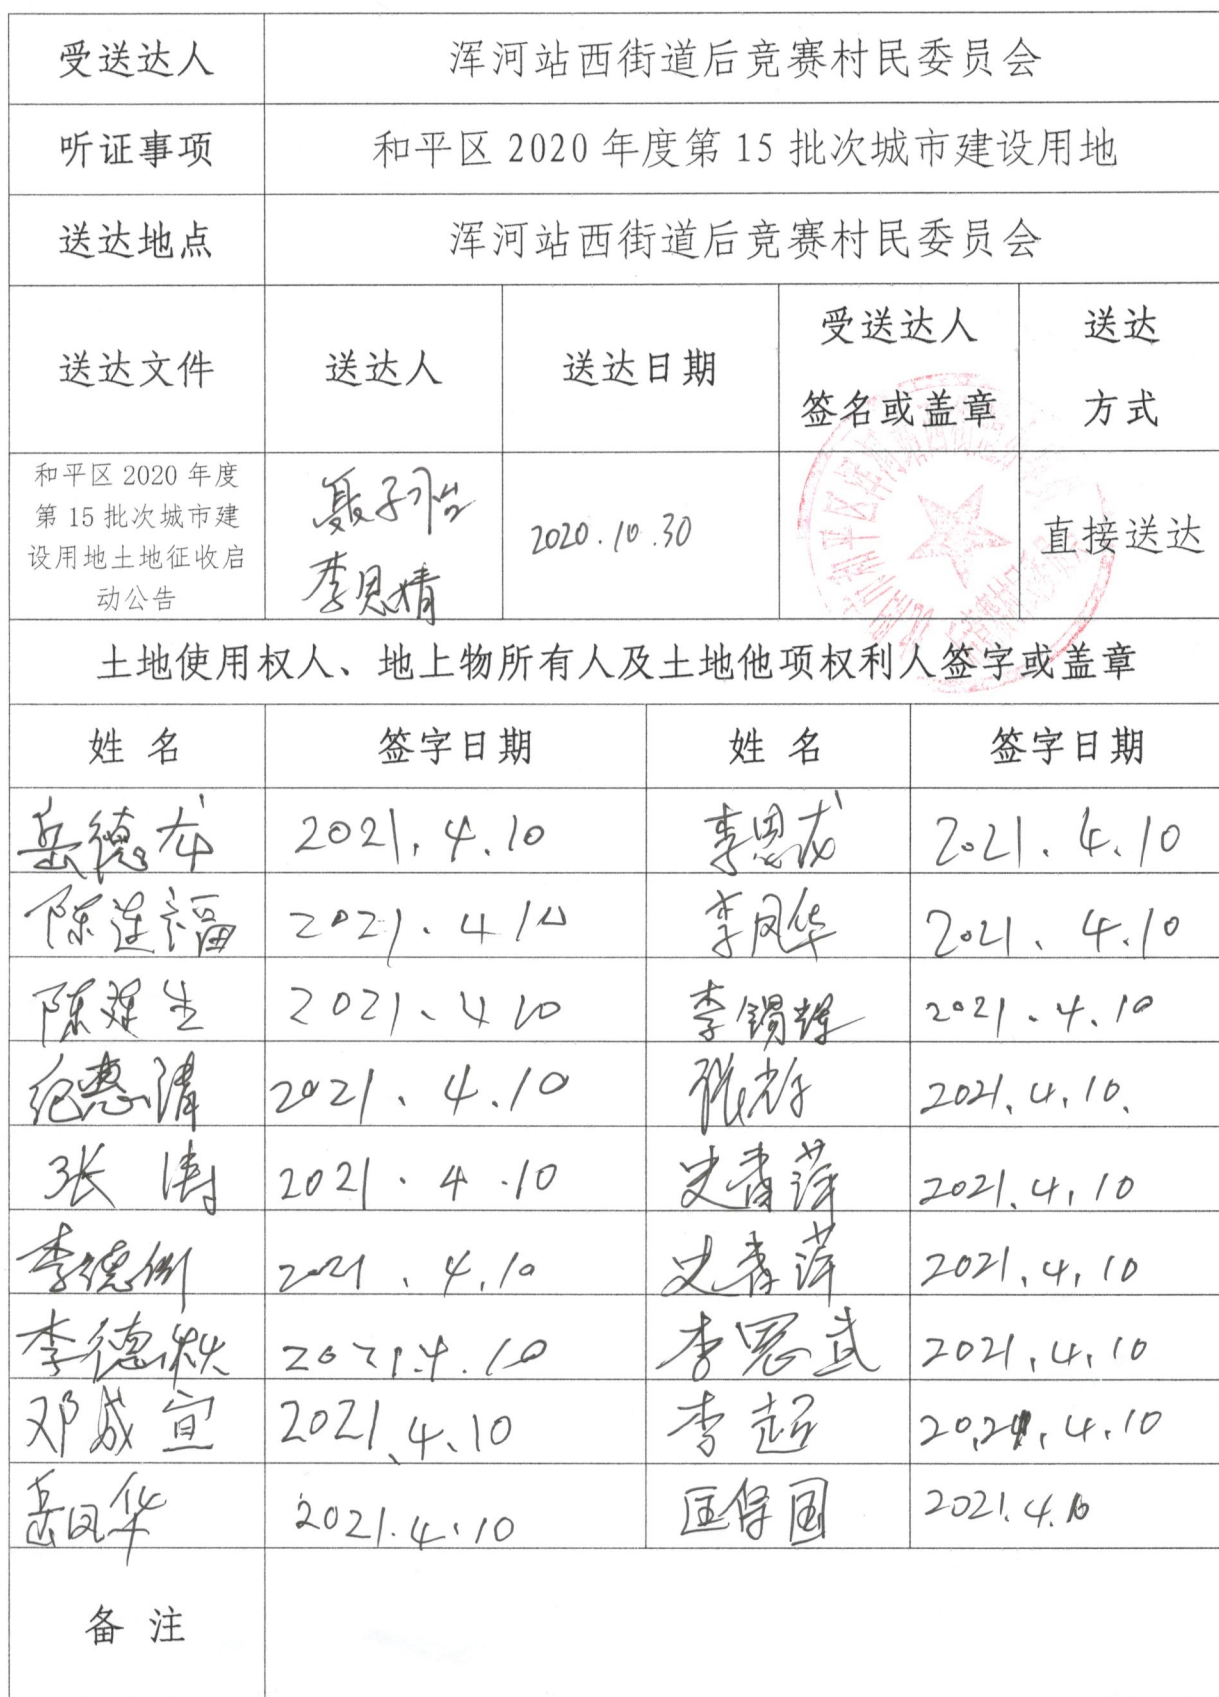 受送达人 浑河站西街道后竞赛村民委员会
听证事项 和平区 2020 年度第 15 批次城市建设用地
送达地点 浑河站西街道后竞赛村民委员会
送达文件 送达人 送达日期 受送达人 签名或盖章 送达 方式
和平区 2020 年度
第 15 批次城市建
设用地土地征收启
动公告
聂子怡
李思情
2020.10.30
直接送达
土地使用权人、地上物所有人及土地他项权利人签字或盖章
姓 名 签字日期 姓 名 签字日期
岳德龙 2021.4.10 李恩成 2021.4.10
陈连福 2021.4.10 李凤华 2021.4.10
陈 生 2021.4.10 李锡辉 2021.4.10
纪惠清 2021.4.10 张 2021.4.10.
张涛 2021.4.10 史春萍 2021.4.10
李德 2021.4.10 史春萍 2021.4.10
李德秋 2021.4.10 李恩武 2021.4.10
邓成宣 2021.4.10 李超 2021.4.10
岳凤华 2021.4.10 匡保国 2021.4.10
备 注